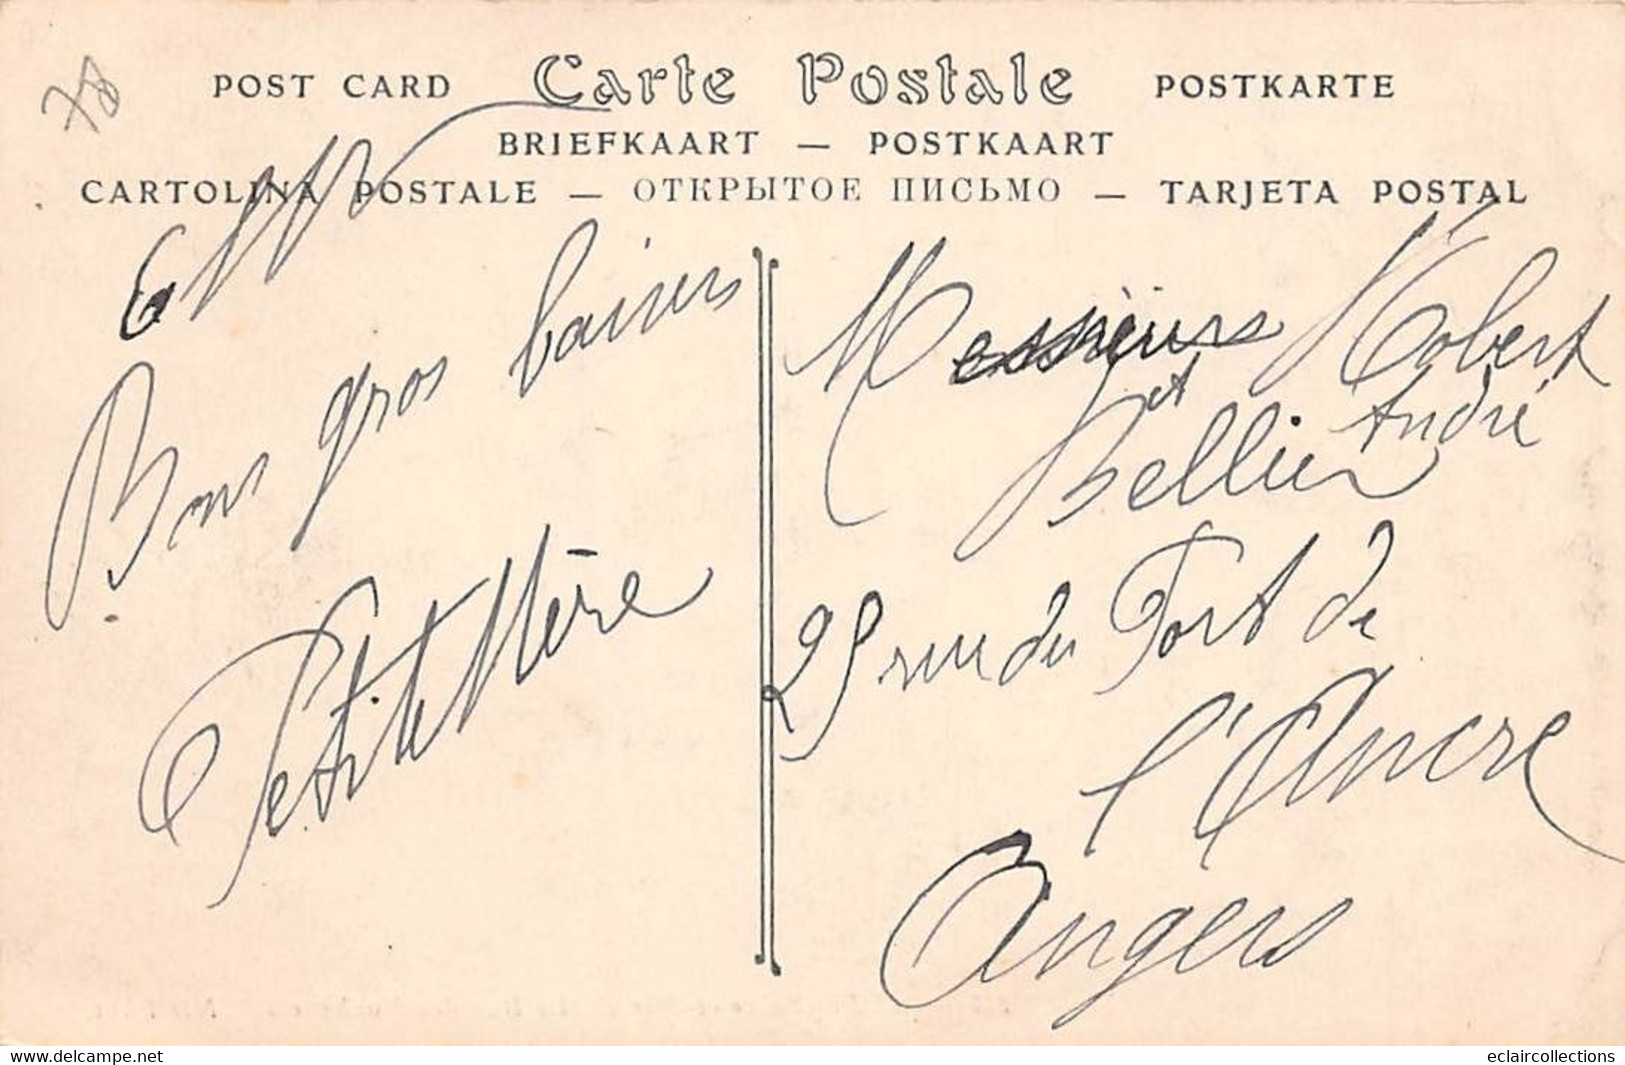 78
POST CARD Carte Postale POSTKARTE
BRIEFKAART — POSTKAART
CARTOLINA POSTALE — ОТКРЫТОЕ ПИСЬМО — TARJETA POSTAL
Bons gros baisers
Petite Mère
Messieurs Robert
et André
Bellier
25 rue du Port de
l'Ancre
Angers
eclaircollections